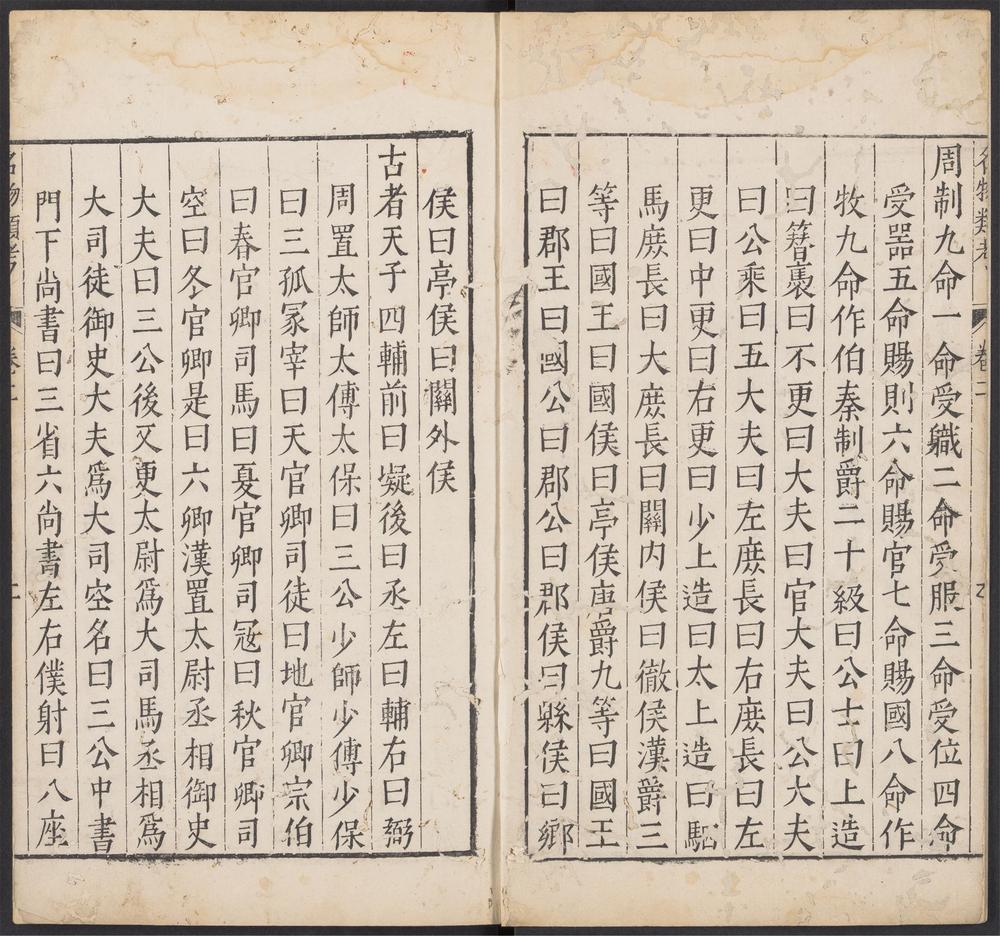 名物類考 卷二
周制九命一命受職二命受服三命受位四命
受器五命賜則六命賜官七命賜國八命作
牧九命作伯秦制爵二十級曰公士曰上造
曰簪褭曰不更曰大夫曰官大夫曰公大夫
曰公乘曰五大夫曰左庻長曰右庻長曰左
更曰中更曰右更曰少上造曰太上造曰駟
馬庻長曰大庻長曰關内侯曰徹侯漢爵三
等曰國王曰國侯曰亭侯唐爵九等曰國王
曰郡王曰國公曰郡公曰郡侯曰縣侯曰鄉
侯曰亭侯曰關外侯
古者天子四輔前曰凝後曰丞左曰輔右曰弼
周置太師太傅太保曰三公少師少傅少保
曰三孤冢宰曰天官卿司徒曰地官卿宗伯
曰春官卿司馬曰夏官卿司冦曰秋官卿司
空曰冬官卿是曰六卿漢置太尉丞相御史
大夫曰三公後又更太尉爲大司馬丞相爲
大司徒御史大夫爲大司空名曰三公中書
門下尚書曰三省六尚書左右僕射曰八座
名物類考 卷二 二